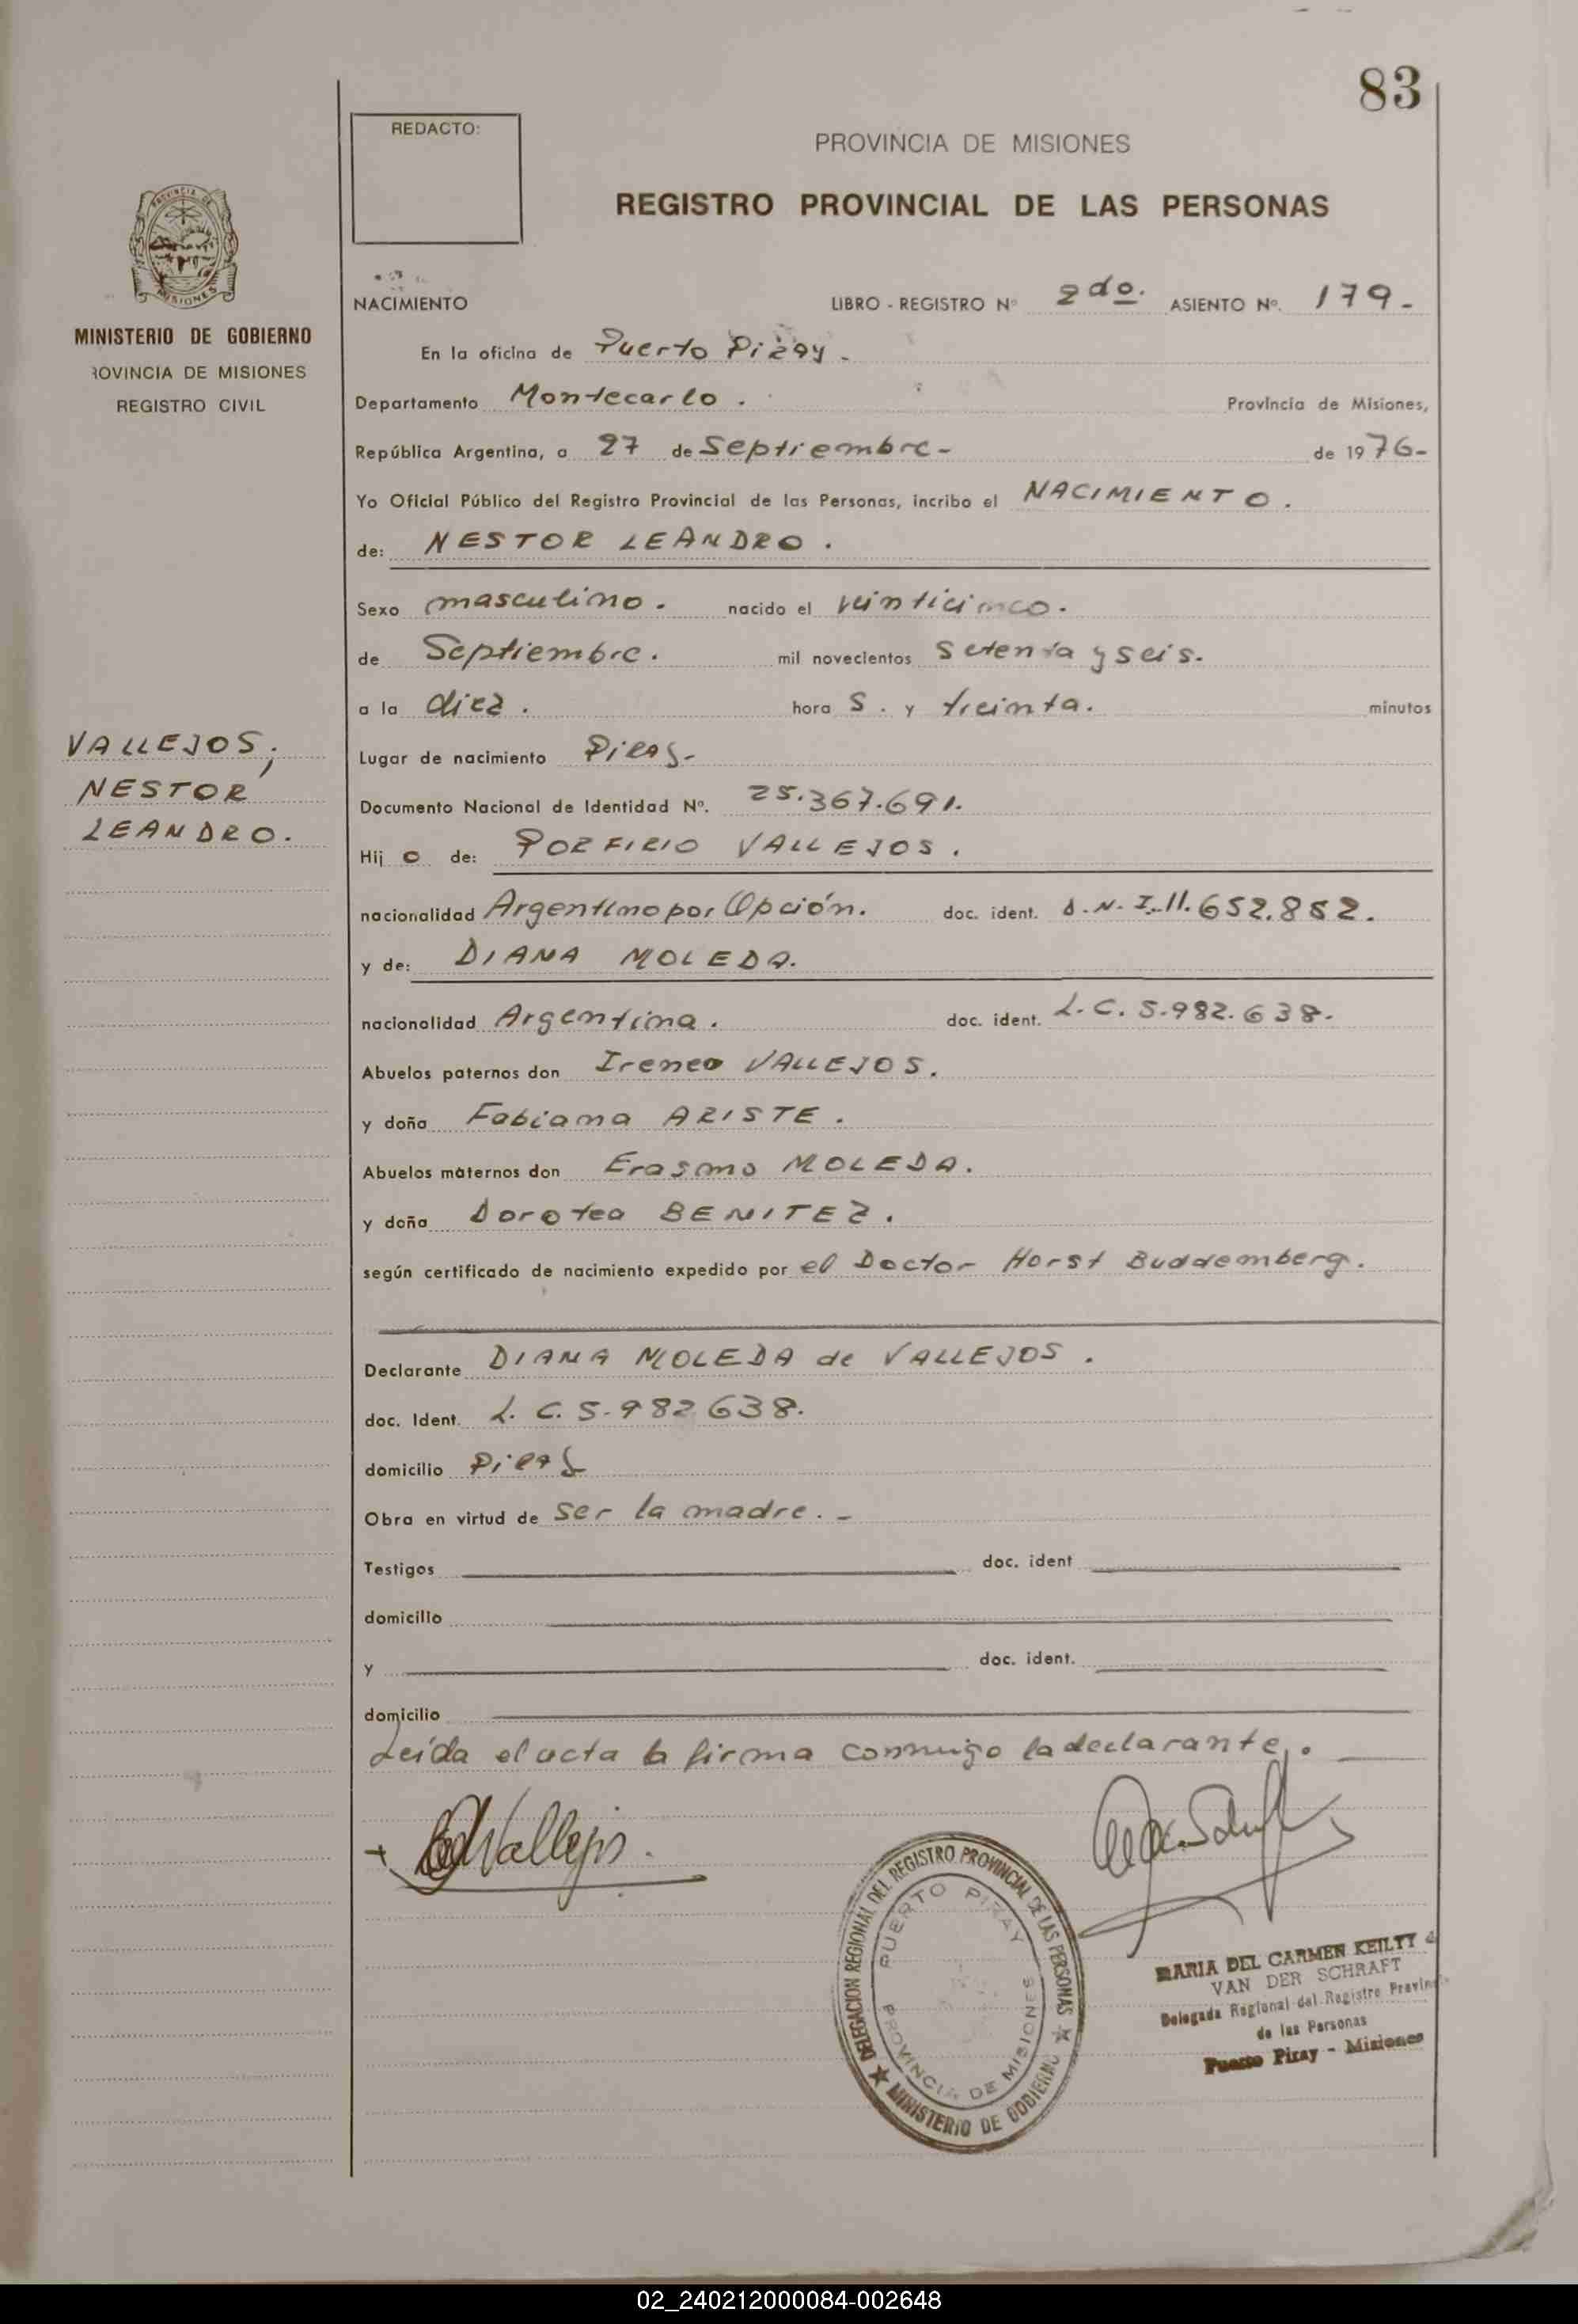 83
REDACTO:
PROVINCIA DE MISIONES
REGISTRO PROVINCIAL DE LAS PERSONAS
PROVINCIA DE
MISIONES
MINISTERIO DE GOBIERNO
ROVINCIA DE MISIONES
REGISTRO CIVIL
NACIMIENTO LIBRO - REGISTRO Nº 2do. ASIENTO Nº. 179-
En la oficina de Puerto Piray-
Departamento Montecarlo. Provincia de Misiones,
República Argentina, a 27 de Septiembre- de 1976-
Yo Oficial Público del Registro Provincial de las Personas, incribo el NACIMIENTO.
de: NESTOR LEANDRO.
Sexo masculino. nacido el veinticinco.
de Septiembre. mil novecientos setenta y seis.
a la diez. hora s. y treinta. minutos
VALLEJOS,
NESTOR
LEANDRO.
Lugar de nacimiento Piray-
Documento Nacional de Identidad Nº. 25.367.691.
Hij o de: PORFIRIO VALLEJOS.
nacionalidad Argentino por Opción. doc. ident. D.N.I. 11.652.852.
y de: DIANA MOLEDA.
nacionalidad Argentina. doc. ident. L.C. 5.982.638.
Abuelos paternos don Ireneo VALLEJOS.
y doña Fabiana ARISTE.
Abuelos maternos don Erasmo MOLEDA.
y doña Dorotea BENITEZ.
según certificado de nacimiento expedido por el Doctor Horst Buddemberg.
Declarante DIANA MOLEDA de VALLEJOS.
doc. Ident. L.C. 5.982638.
domicilio Piray
Obra en virtud de ser la madre.-
Testigos doc. ident
domicilio
y doc. ident.
domicilio
Leída el acta la firma conmigo la declarante.
Vallejos.
DELEGACION REGIONAL DEL REGISTRO PROVINCIAL DE LAS PERSONAS
PUERTO PIRAY
PROVINCIA DE MISIONES
MINISTERIO DE GOBIERNO
MARIA DEL CARMEN KEILTY d
VAN DER SCHRAFT
Delegada Regional del Registro Provin
de las Personas
Puerto Piray - Misiones
02_240212000084-002648